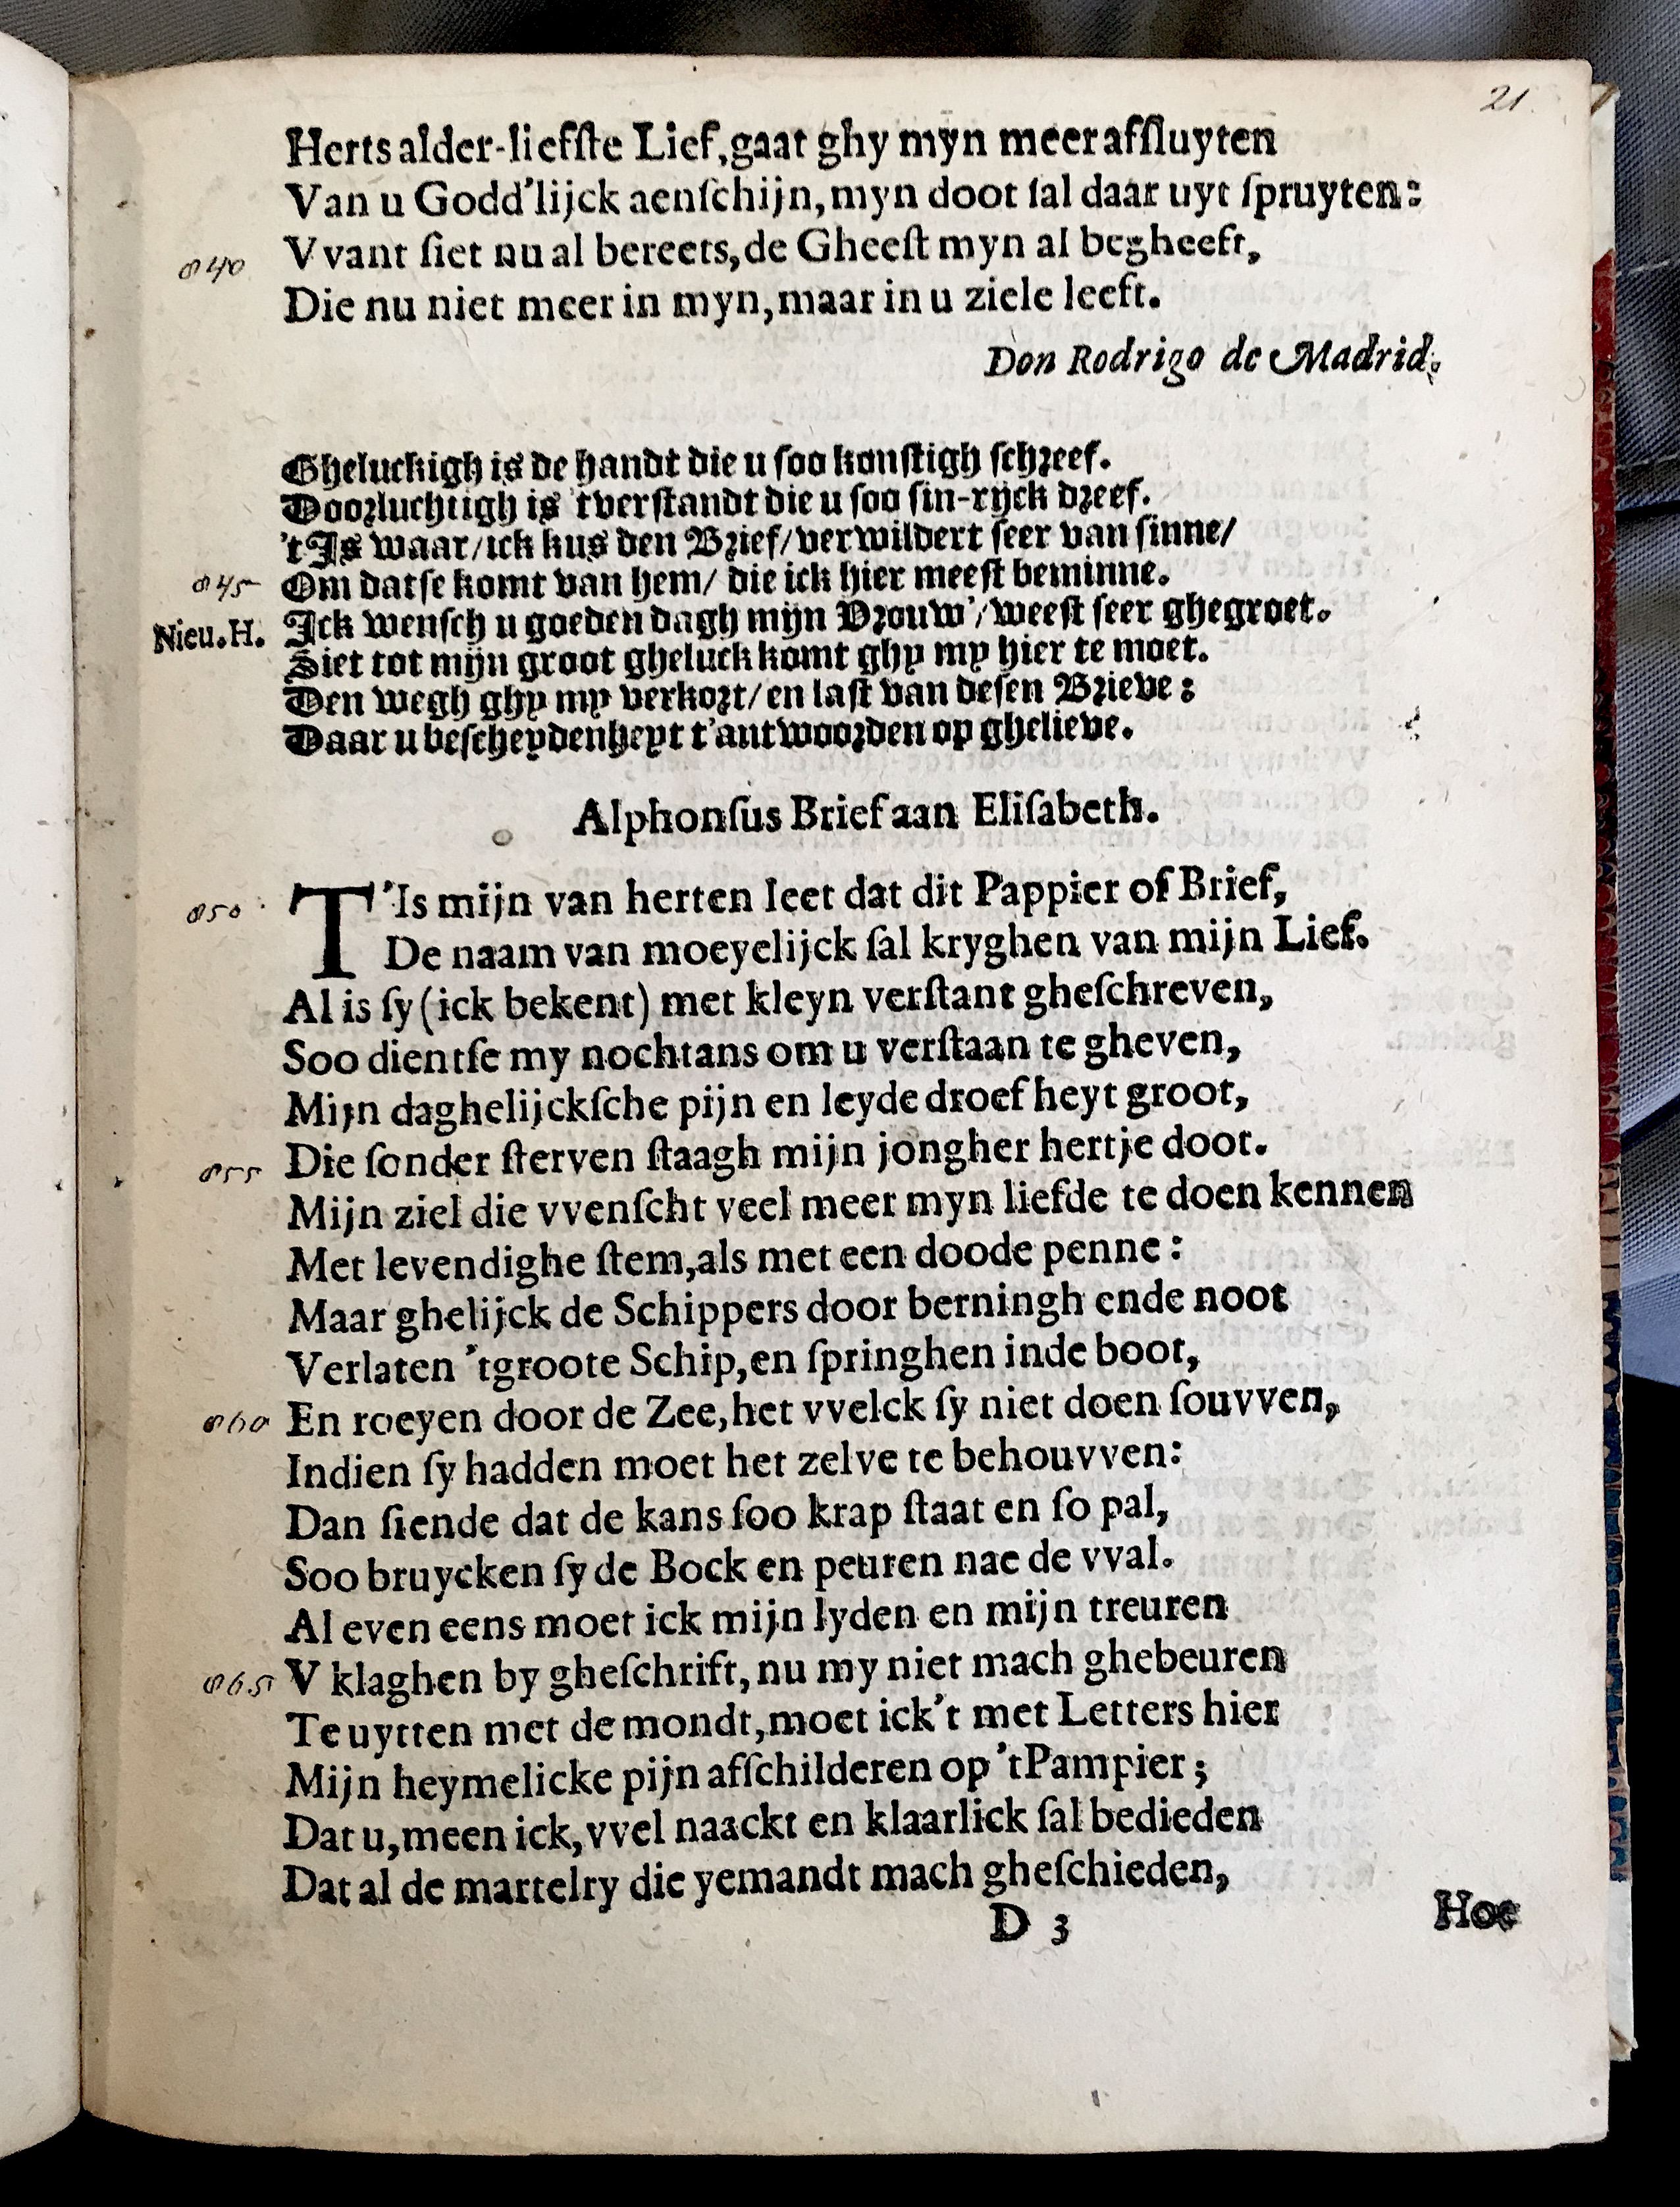 21
Herts alder-liefſte Lief, gaat ghy myn meer afſluyten
Van u Godd'lijck aenſchijn, myn doot ſal daar uyt ſpruyten:
840 Vvant ſiet nu al bereets, de Gheeſt myn al begheeft,
Die nu niet meer in myn, maar in u ziele leeft.
Don Rodrigo de Madrid.
Gheluckigh is de handt die u ſoo konſtigh ſchreef.
Doorluchtigh is 'tverſtandt die u ſoo ſin-rijck dreef.
't Is waar/ ick kus den Brief/ verwildert ſeer van ſinne/
845 Om datſe komt van hem/ die ick hier meeſt beminne.
Nieu.H. Ick wenſch u goeden dagh mijn Vrouw'/ weeſt ſeer ghegroet.
Siet tot mijn groot gheluck komt ghy my hier te moet.
Den wegh ghy my verkort/ en laſt van deſen Brieve:
Daar u beſcheydenheyt t'antwoorden op ghelieve.
Alphonſus Brief aan Eliſabeth.
850 T'Is mijn van herten leet dat dit Pappier of Brief,
De naam van moeyelijck ſal kryghen van mijn Lief.
Al is ſy (ick bekent) met kleyn verſtant gheſchreven,
Soo dientſe my nochtans om u verſtaan te gheven,
Mijn daghelijckſche pijn en leyde droefheyt groot,
855 Die ſonder ſterven ſtaagh mijn jongher hertje doot.
Mijn ziel die vvenſcht veel meer myn liefde te doen kennen
Met levendighe ſtem, als met een doode penne:
Maar ghelijck de Schippers door berningh ende noot
Verlaten 'tgroote Schip, en ſpringhen inde boot,
860 En roeyen door de Zee, het vvelck ſy niet doen ſouvven,
Indien ſy hadden moet het zelve te behouvven:
Dan ſiende dat de kans ſoo krap ſtaat en ſo pal,
Soo bruycken ſy de Bock en peuren nae de vval.
Al even eens moet ick mijn lyden en mijn treuren
865 V klaghen by gheſchrift, nu my niet mach ghebeuren
Te uytten met de mondt, moet ick't met Letters hier
Mijn heymelicke pijn afſchilderen op 'tPampier;
Dat u, meen ick, vvel naackt en klaarlick ſal bedieden
Dat al de martelry die yemandt mach gheſchieden,
D 3
Hoe